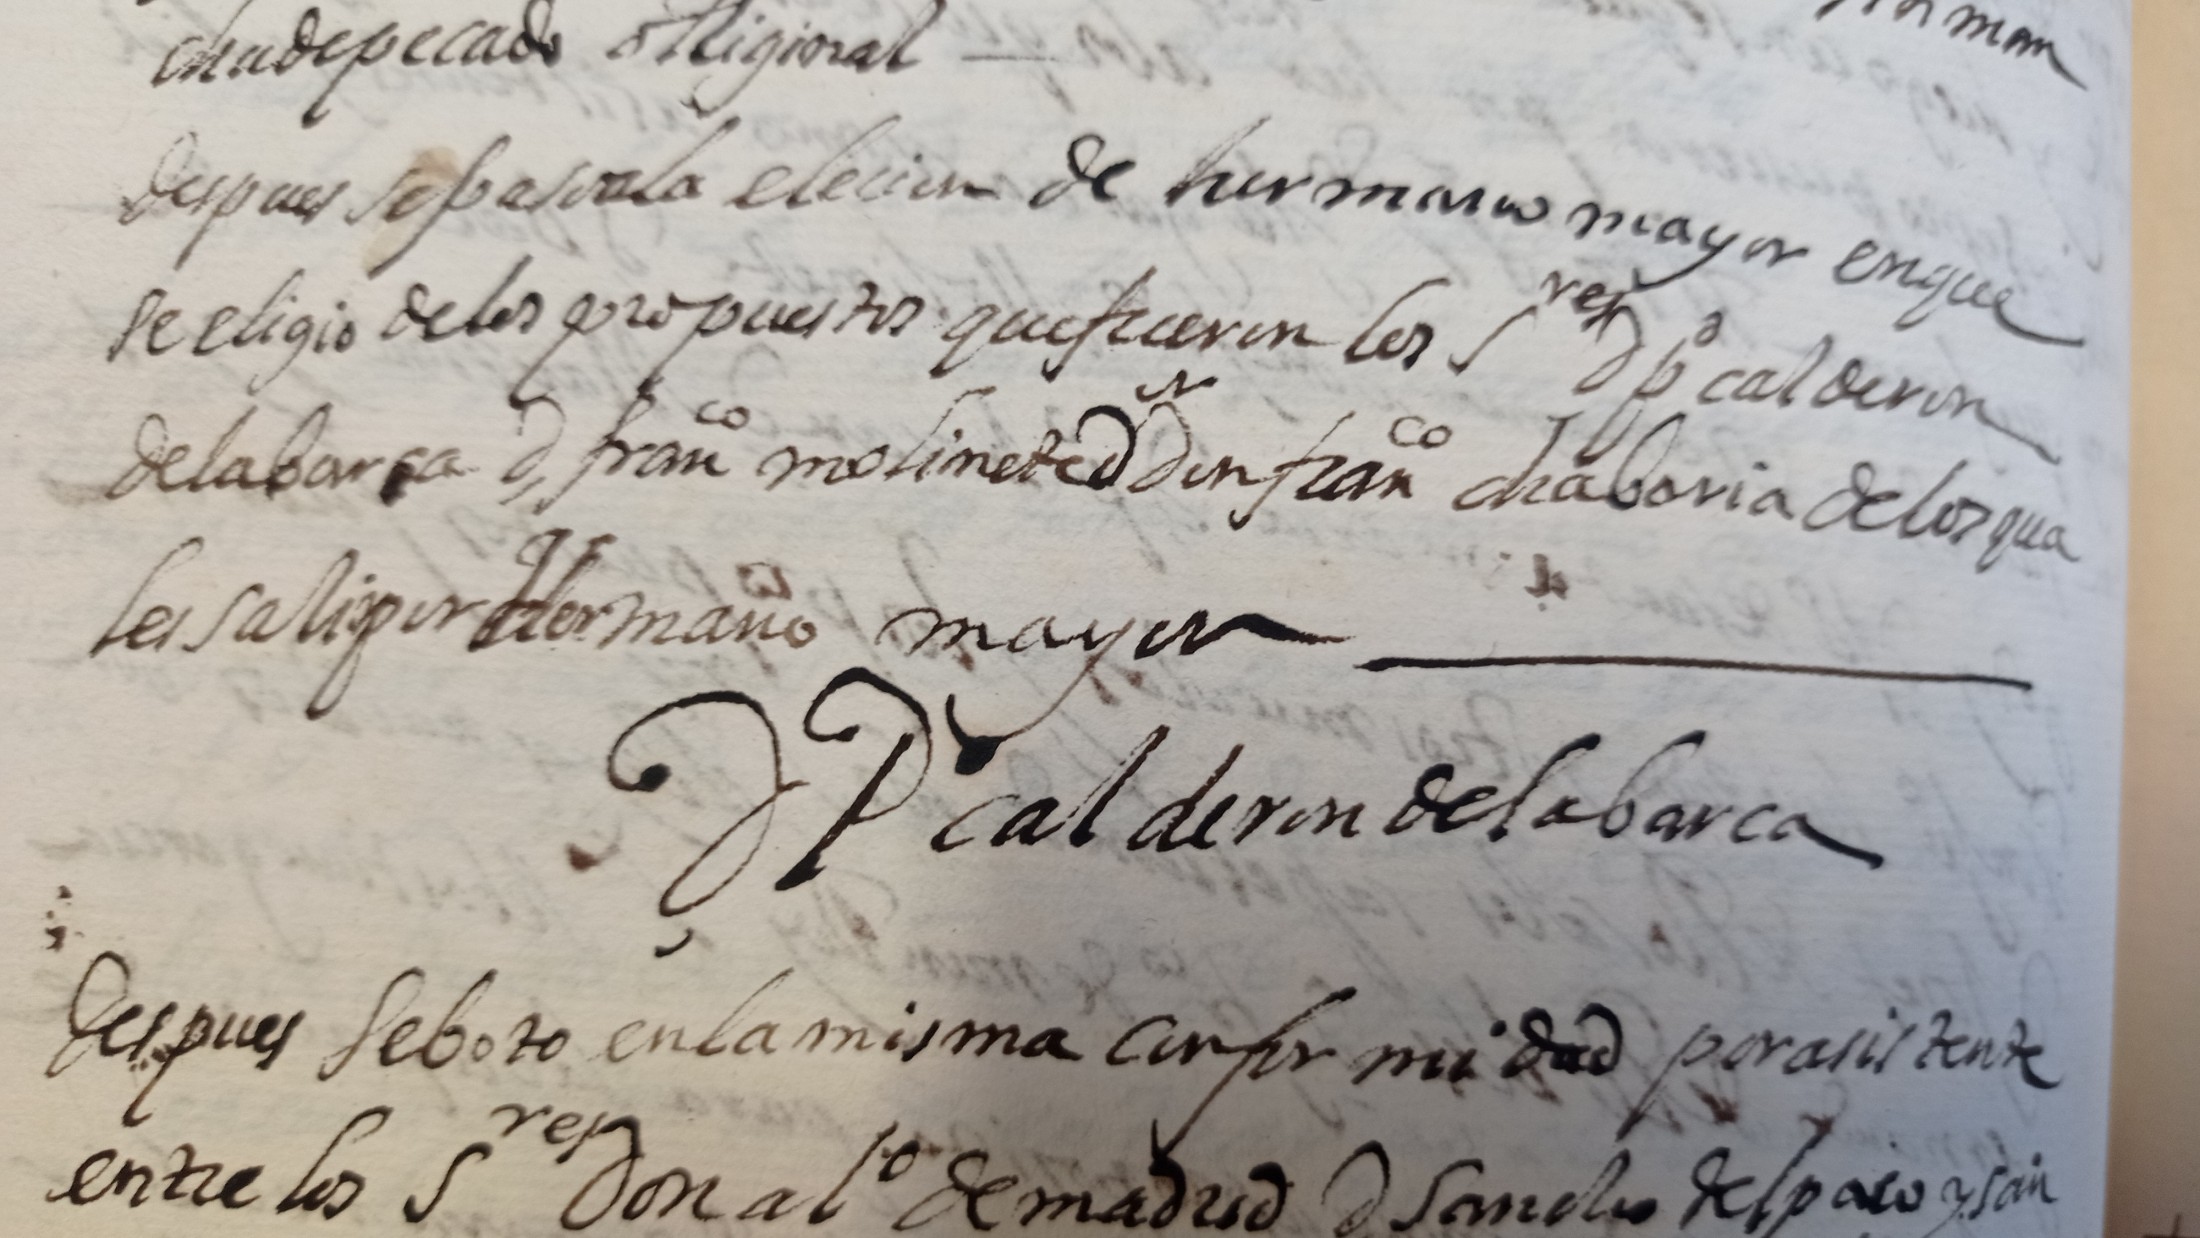 man
chadepecado origignal
Despues sepasoala elecion de hermano mayor enque
se eligio delos propuestos quefueron los S.res D po calderon
delabarca D, franco molinete D Don franco chaboria delosqua
les salio por Hermano mayor
D Po calderon delabarca
Despues seboto enlamisma conformidad porasistente
entre los S.res Don alo demadrid D sancho delpaco y san